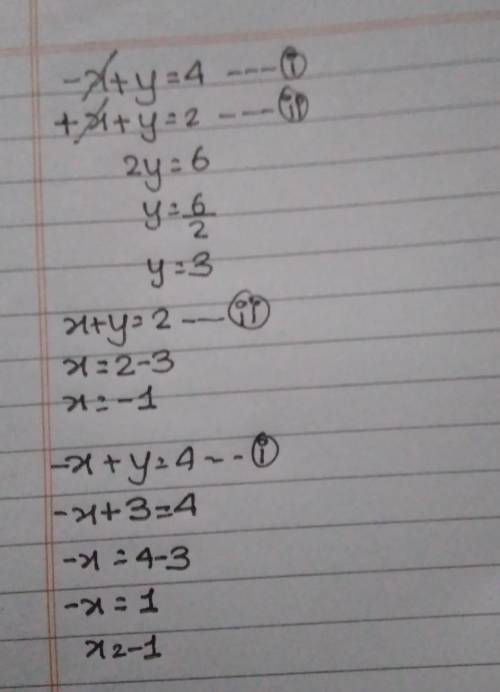 -x+y=4 ---- (i)
+x+y=2 ---- (ii)
2y=6
y=6/2
y=3
x+y=2 --- (ii)
x=2-3
x=-1
-x+y=4 -- (i)
-x+3=4
-x=4-3
-x=1
x=-1